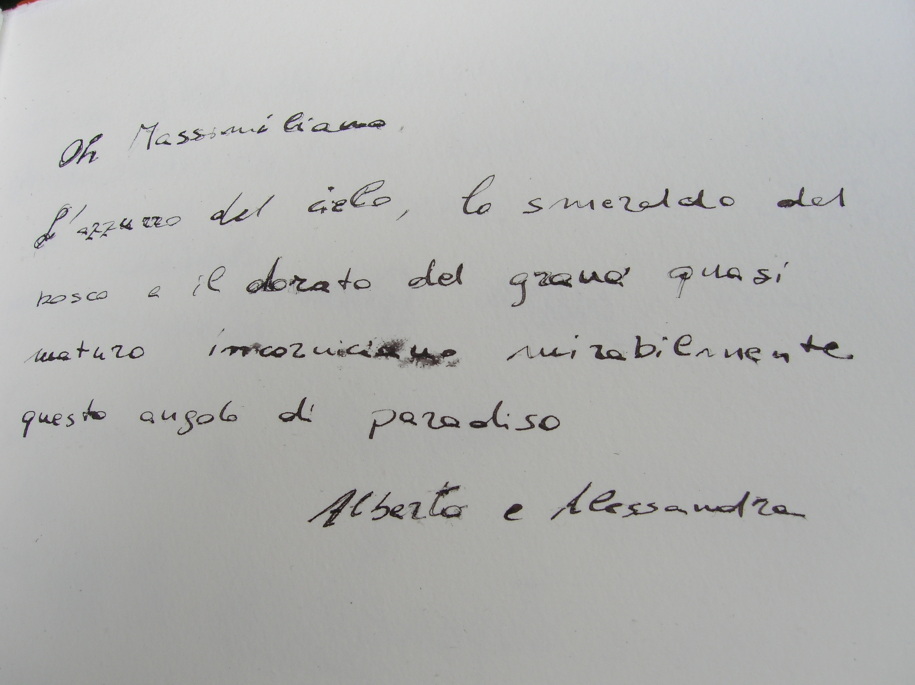 Oh Massimiliano,
L'azzurro del cielo, lo smeraldo del
bosco e il dorato del grano quasi
maturo incorniciano mirabilmente
questo angolo di paradiso
Alberto e Alessandra